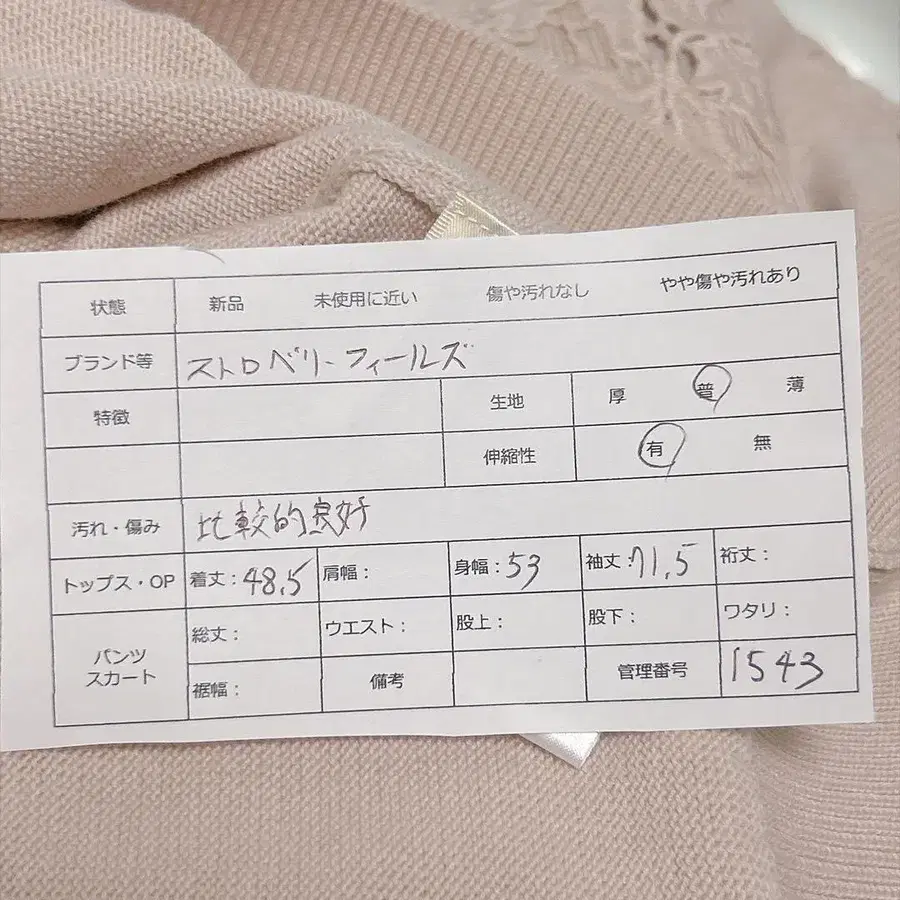 状態 新品 未使用に近い 傷や汚れなし やや傷や汚れあり
ブランド等 ストロベリーフィールズ
特徴 生地 厚 普 薄
伸縮性 有 無
汚れ・傷み 比較的良好
トップス・OP 着丈:48.5 肩幅: 身幅:53 袖丈:71.5 裄丈:
パンツ スカート 総丈: ウエスト: 股上: 股下: ワタリ:
裾幅: 備考 管理番号 1543